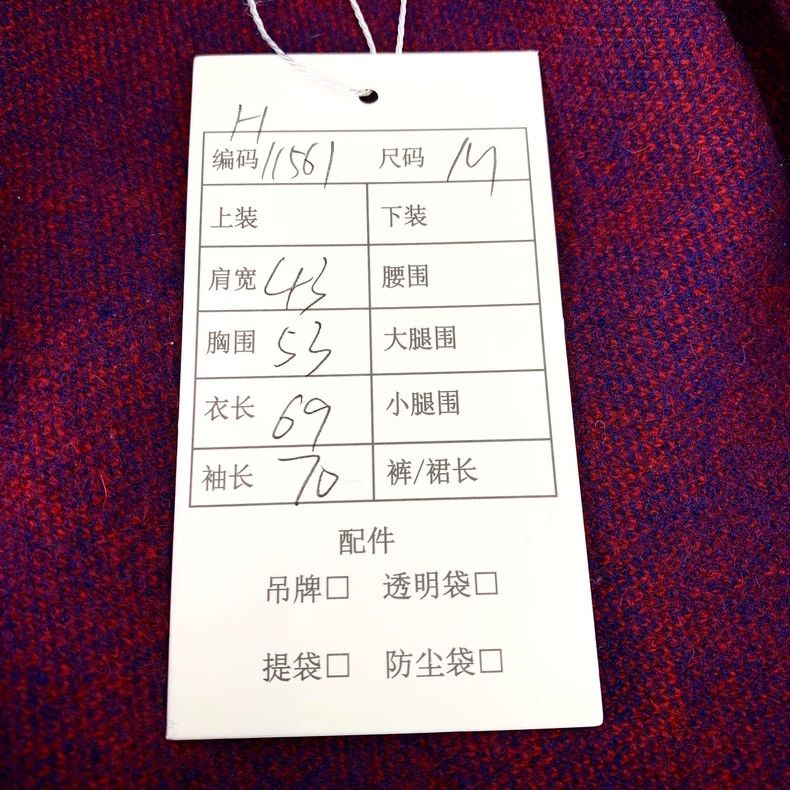 H
编码 11561 尺码 M
上装 下装
肩宽 43 腰围
胸围 53 大腿围
衣长 69 小腿围
袖长 70 裤/裙长
配件
吊牌□ 透明袋□
提袋□ 防尘袋□